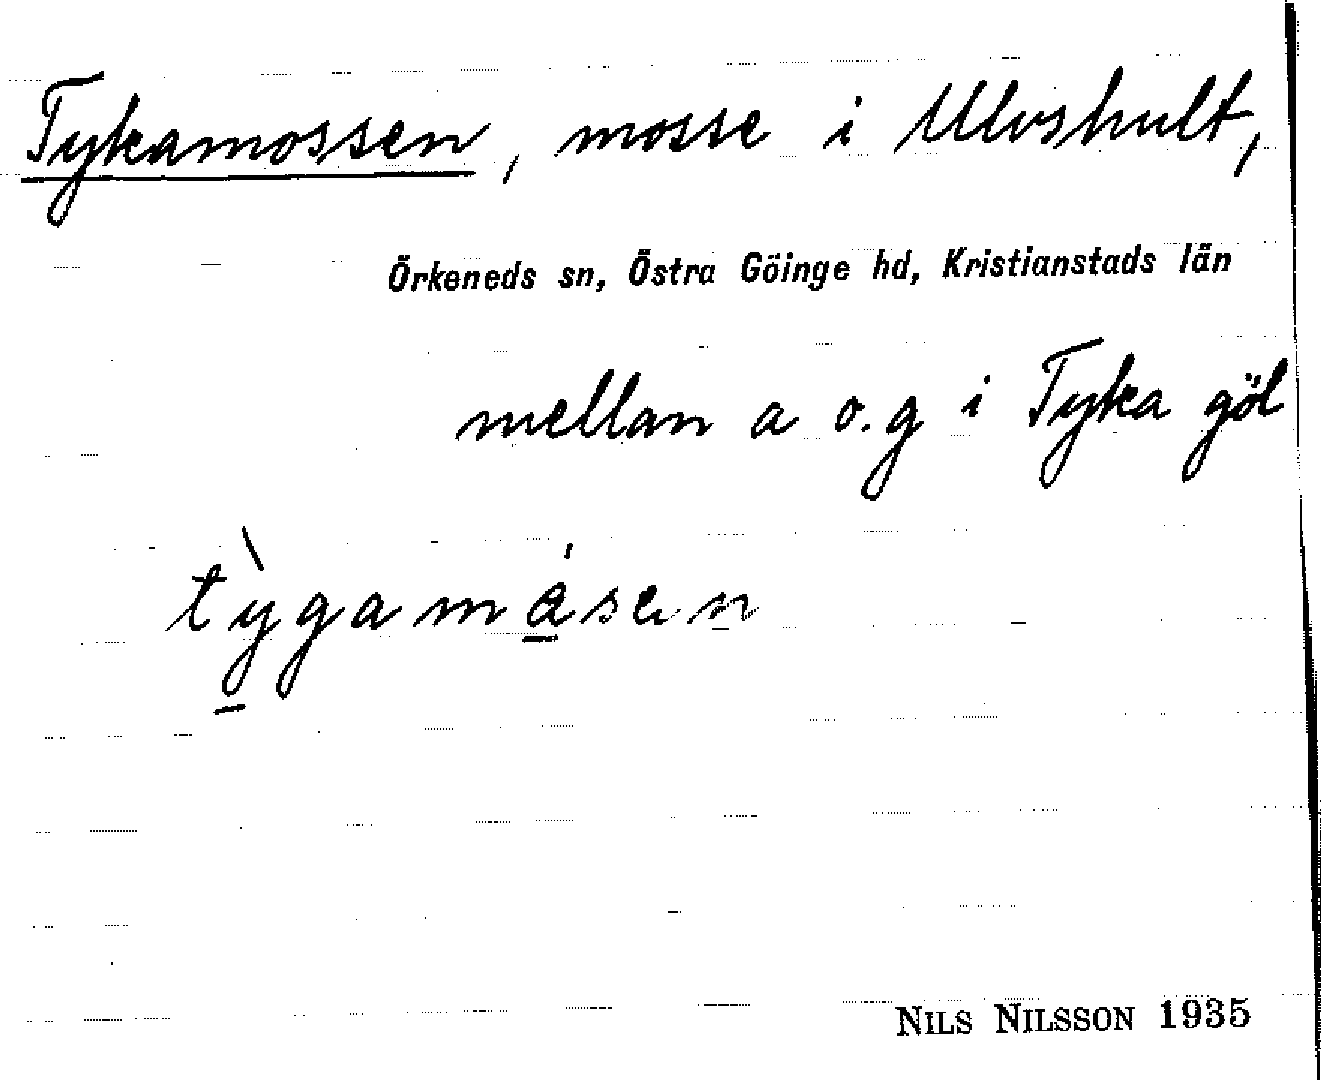 Tykamossen, mosse i Ulvshult,
Örkeneds sn, Östra Göinge hd, Kristianstads län
mellan a o. g i Tyka göl
tỳgamásen
NILS NILSSON 1935